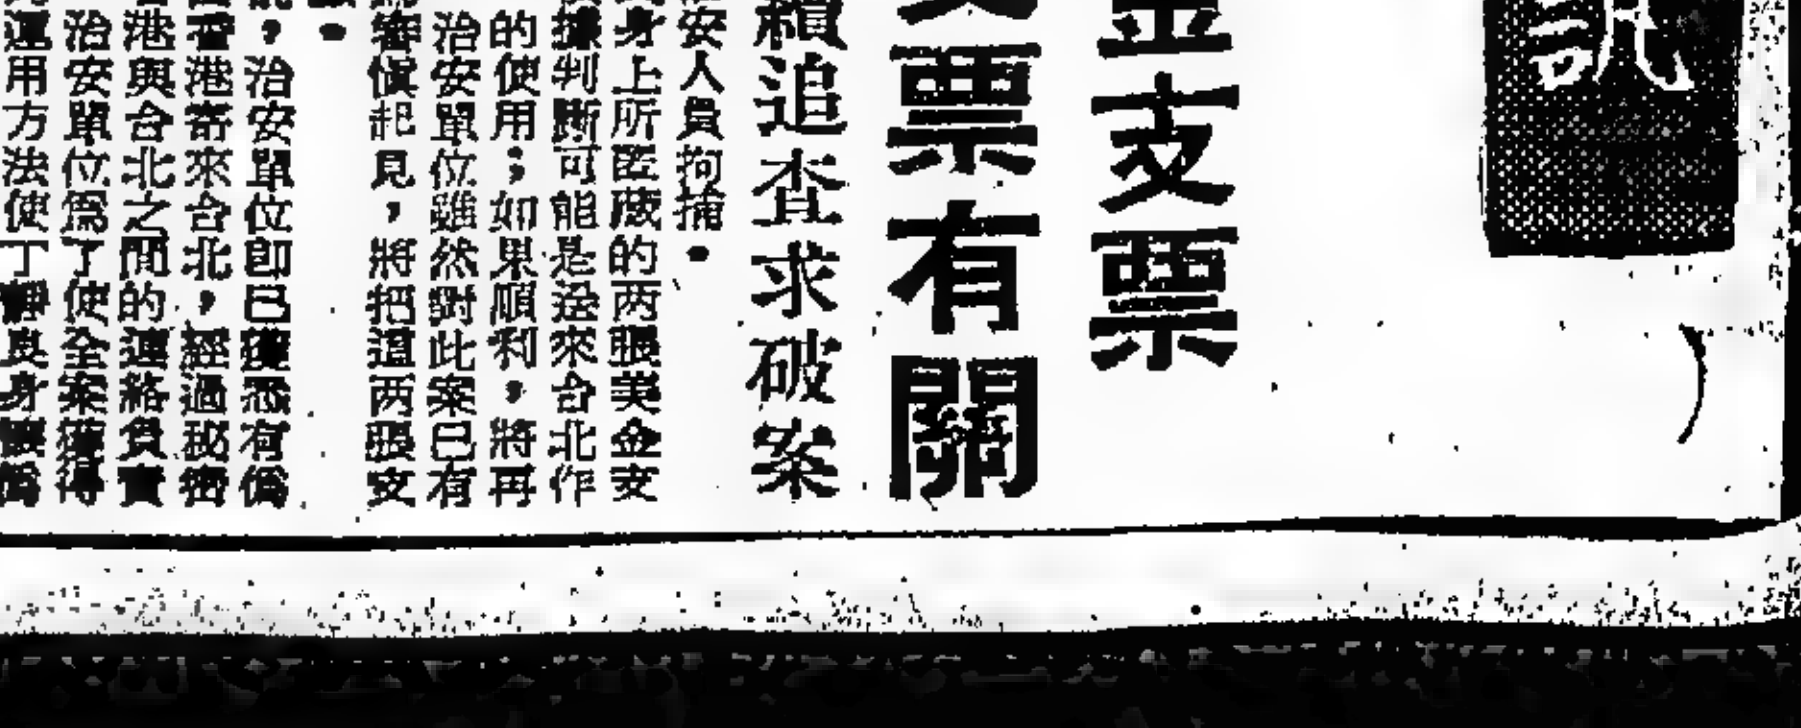 訊
金支票
支票有關
續追查求破案
治安人員拘捕。
身上所匿藏的两張美金支
據判斷可能是送來台北作
的使用；如果順利，將再
治安單位雖然對此案已有
審愼起見，將把這两張支
，治安單位即已獲悉有偽
香港寄來台北，經過秘密
港與台北之間的連絡負責
治安單位爲了使全案獲得
運用方法使丁靜良身懷偽